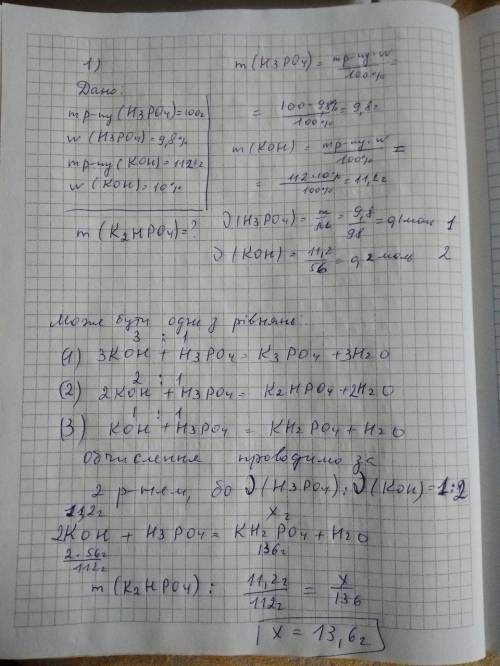 1)
Дано:
mр-ну(H3PO4)=100г
w(H3PO4)=9,8%
mр-ну(KOH)=112г
w(KOH)=10%
m(K2HPO4)=?
m(H3PO4)= mр-ну·w / 100% =
= 100·9,8% / 100% = 9,8г
m(KOH) = mр-ну·w / 100% =
= 112·10% / 100% = 11,2г
ν(H3PO4)= m/M = 9,8/98 = 0,1моль 1
ν(KOH)= 11,2/56 = 0,2моль 2
Може бути одне з рівнянь
3 : 1
(1) 3KOH + H3PO4 = K3PO4 + 3H2O
2 : 1
(2) 2KOH + H3PO4 = K2HPO4 + 2H2O
1 : 1
(3) KOH + H3PO4 = KH2PO4 + H2O
Обчислення проводимо за
2 р-ням, бо ν(H3PO4):ν(KOH)=1:2
11,2г xг
2KOH + H3PO4 = KH2PO4 + H2O
2·56г 136г
112г
m(K2HPO4): 11,2г / 112г = x / 136
x = 13,6г